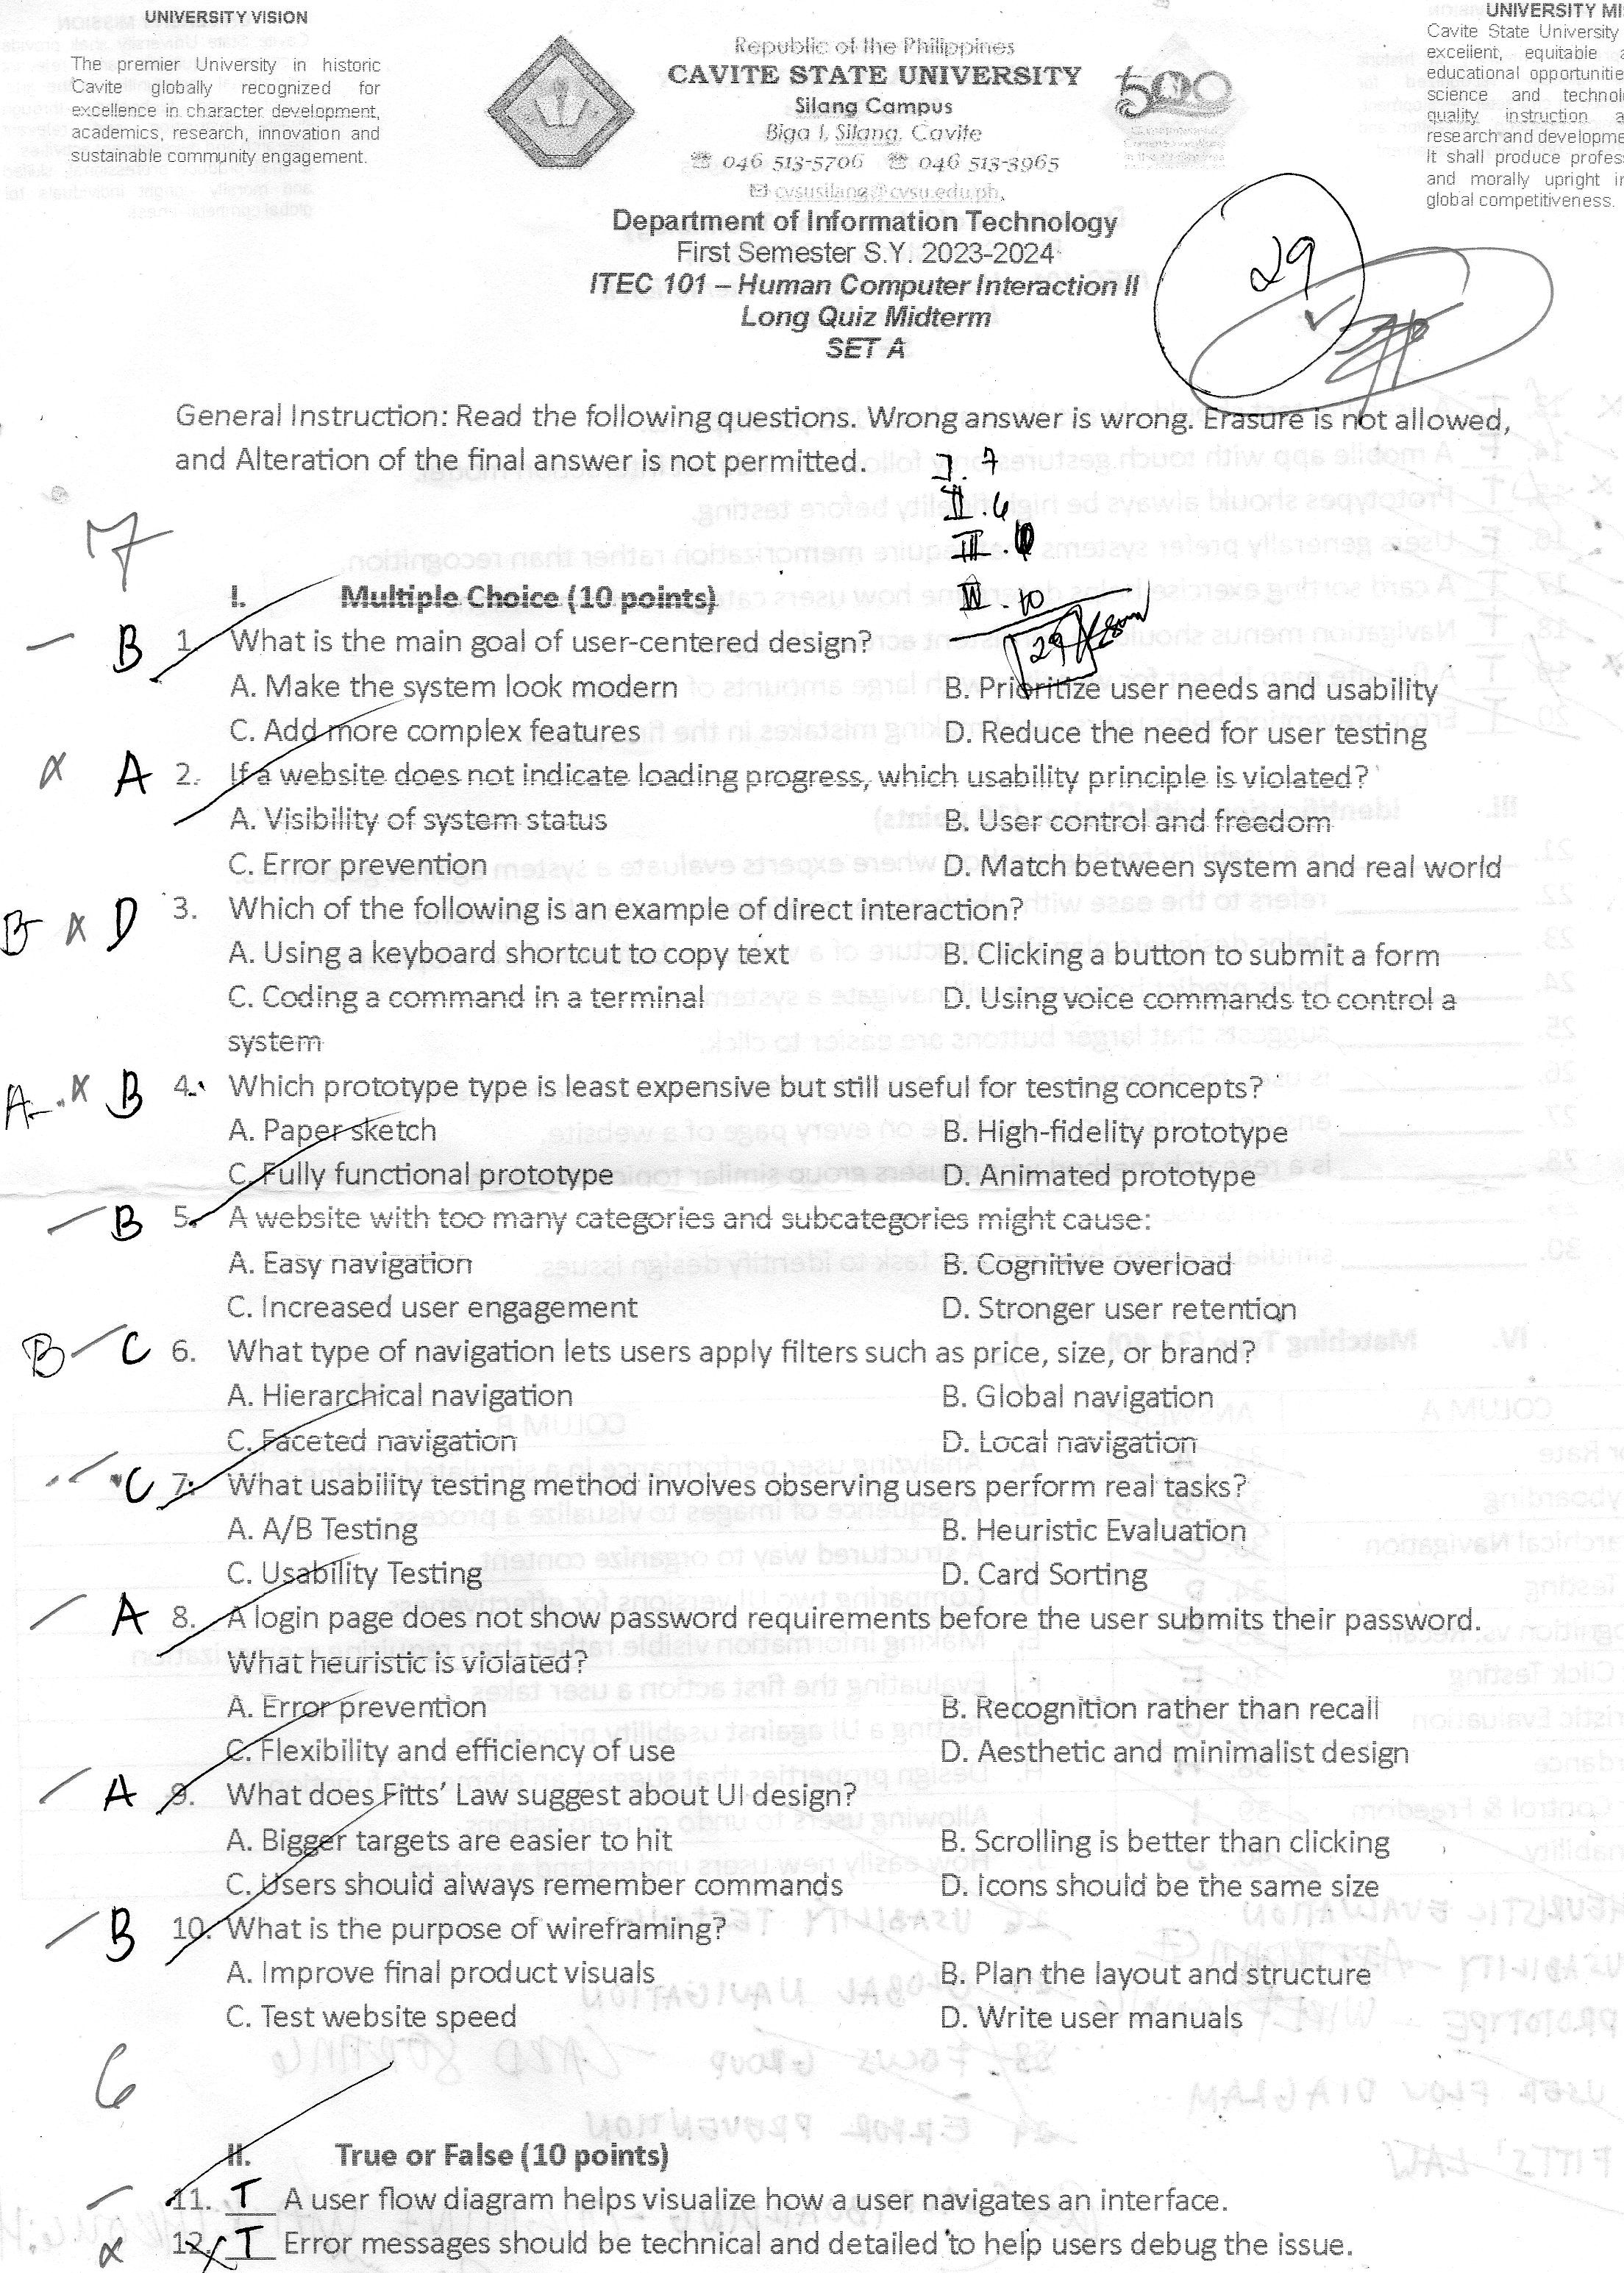 UNIVERSITY VISION
The premier University in historic
Cavite globally recognized for
excellence in character development,
academics, research, innovation and
sustainable community engagement.
Republic of the Philippines
CAVITE STATE UNIVERSITY
Silang Campus
Biga I, Silang, Cavite
☎ 046 513-5706 ☎ 046 513-3965
✉ cvsusilang@cvsu.edu.ph,
500
UNIVERSITY MI
Cavite State University
excellent, equitable a
educational opportunitie
science and technol
quality instruction a
research and developme
It shall produce profes
and morally upright in
global competitiveness.
Department of Information Technology
First Semester S.Y. 2023-2024
ITEC 101 – Human Computer Interaction II
Long Quiz Midterm
SET A
29
General Instruction: Read the following questions. Wrong answer is wrong. Erasure is not allowed,
and Alteration of the final answer is not permitted.
I. 7
II. 6
III.
IV. 10
29
7
I. Multiple Choice (10 points)
B 1. What is the main goal of user-centered design?
A. Make the system look modern B. Prioritize user needs and usability
C. Add more complex features D. Reduce the need for user testing
x A 2. If a website does not indicate loading progress, which usability principle is violated?
A. Visibility of system status B. User control and freedom
C. Error prevention D. Match between system and real world
B x D 3. Which of the following is an example of direct interaction?
A. Using a keyboard shortcut to copy text B. Clicking a button to submit a form
C. Coding a command in a terminal D. Using voice commands to control a
system
A x B 4. Which prototype type is least expensive but still useful for testing concepts?
A. Paper sketch B. High-fidelity prototype
C. Fully functional prototype D. Animated prototype
B 5. A website with too many categories and subcategories might cause:
A. Easy navigation B. Cognitive overload
C. Increased user engagement D. Stronger user retention
B C 6. What type of navigation lets users apply filters such as price, size, or brand?
A. Hierarchical navigation B. Global navigation
C. Faceted navigation D. Local navigation
C 7. What usability testing method involves observing users perform real tasks?
A. A/B Testing B. Heuristic Evaluation
C. Usability Testing D. Card Sorting
A 8. A login page does not show password requirements before the user submits their password.
What heuristic is violated?
A. Error prevention B. Recognition rather than recall
C. Flexibility and efficiency of use D. Aesthetic and minimalist design
A 9. What does Fitts' Law suggest about UI design?
A. Bigger targets are easier to hit B. Scrolling is better than clicking
C. Users should always remember commands D. Icons should be the same size
B 10. What is the purpose of wireframing?
A. Improve final product visuals B. Plan the layout and structure
C. Test website speed D. Write user manuals
6
II. True or False (10 points)
11. T A user flow diagram helps visualize how a user navigates an interface.
x 12. T Error messages should be technical and detailed to help users debug the issue.